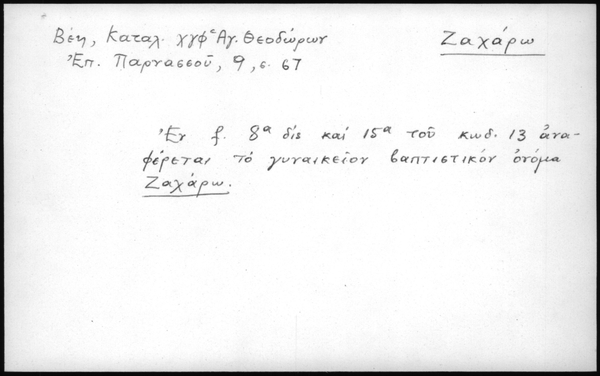 Βέη, Καταλ. χγφ Ἁγ. Θεοδώρων
Ζαχάρω
Ἐπ. Παρνασσοῦ, 9, σ. 67
Ἐν f. 8α δίς καί 15α τοῦ κωδ. 13 ἀνα-
φέρεται τό γυναικεῖον βαπτιστικόν ὀνόμα
Ζαχάρω.